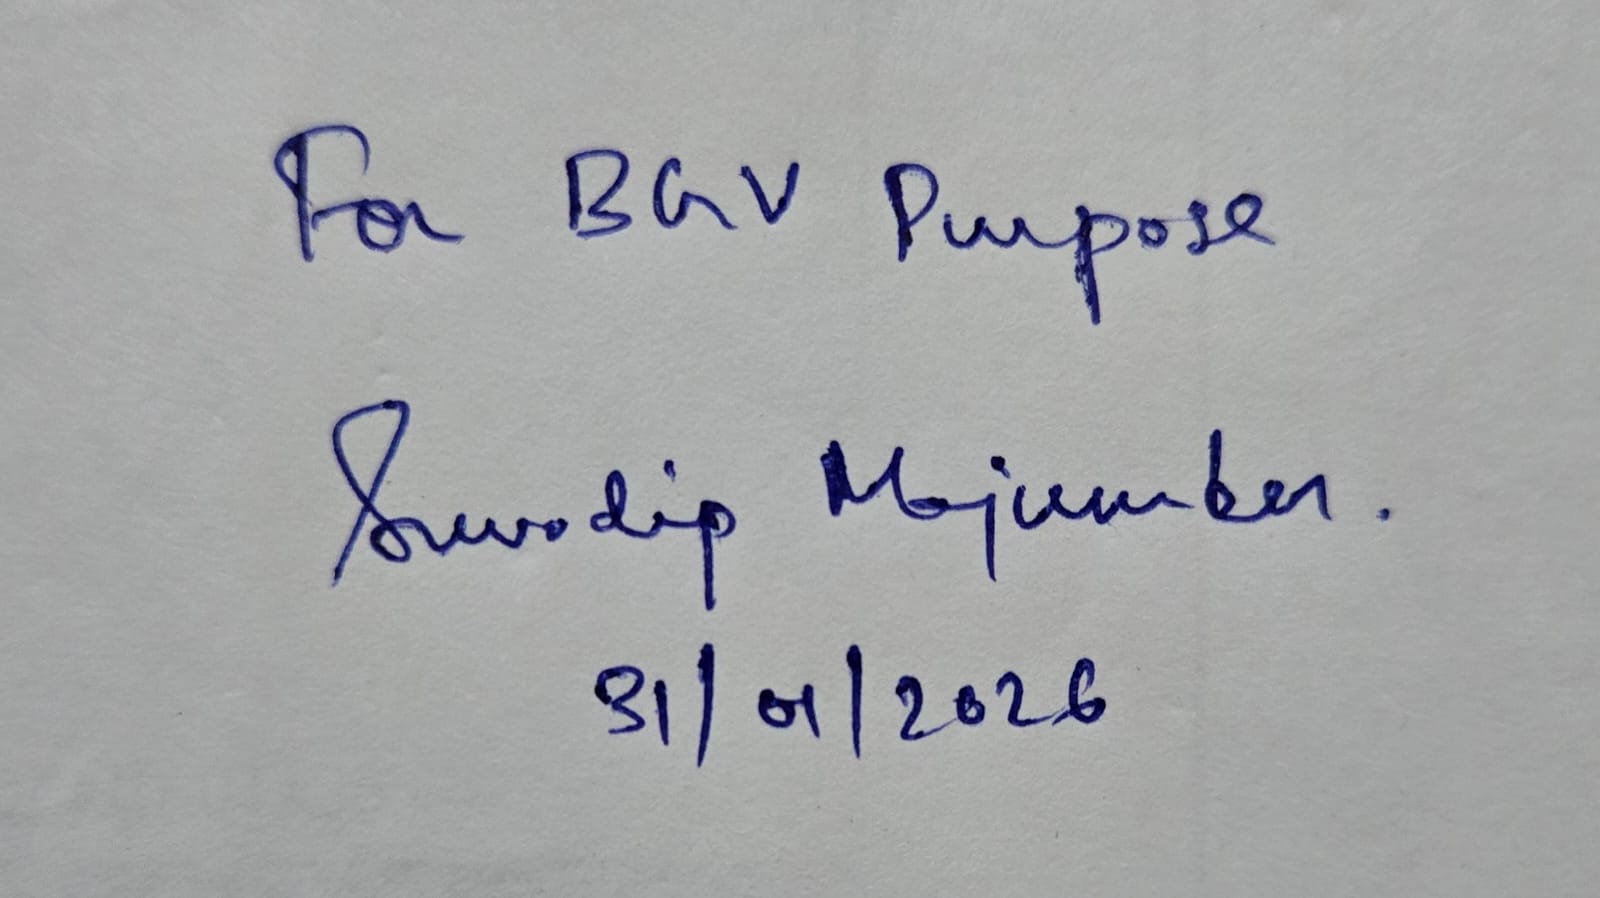 For BGV Purpose
Suvodip Majumder.
31/01/2026